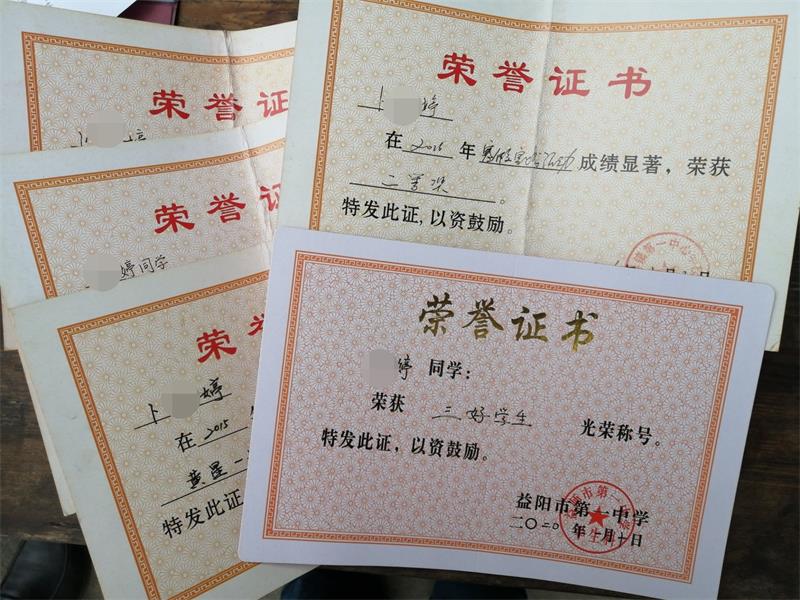 荣誉证
婷
荣誉证
婷同学
荣誉
卜 婷
在 2015
特发此证
荣誉证书
卜 婷
在 2015 年 暑假实践活动 成绩显著，荣获
二等奖。
特发此证，以资鼓励。
荣誉证书
婷 同学：
荣获 三好学生 光荣称号。
特发此证，以资鼓励。
益阳市第一中学
二〇二〇年 月十日